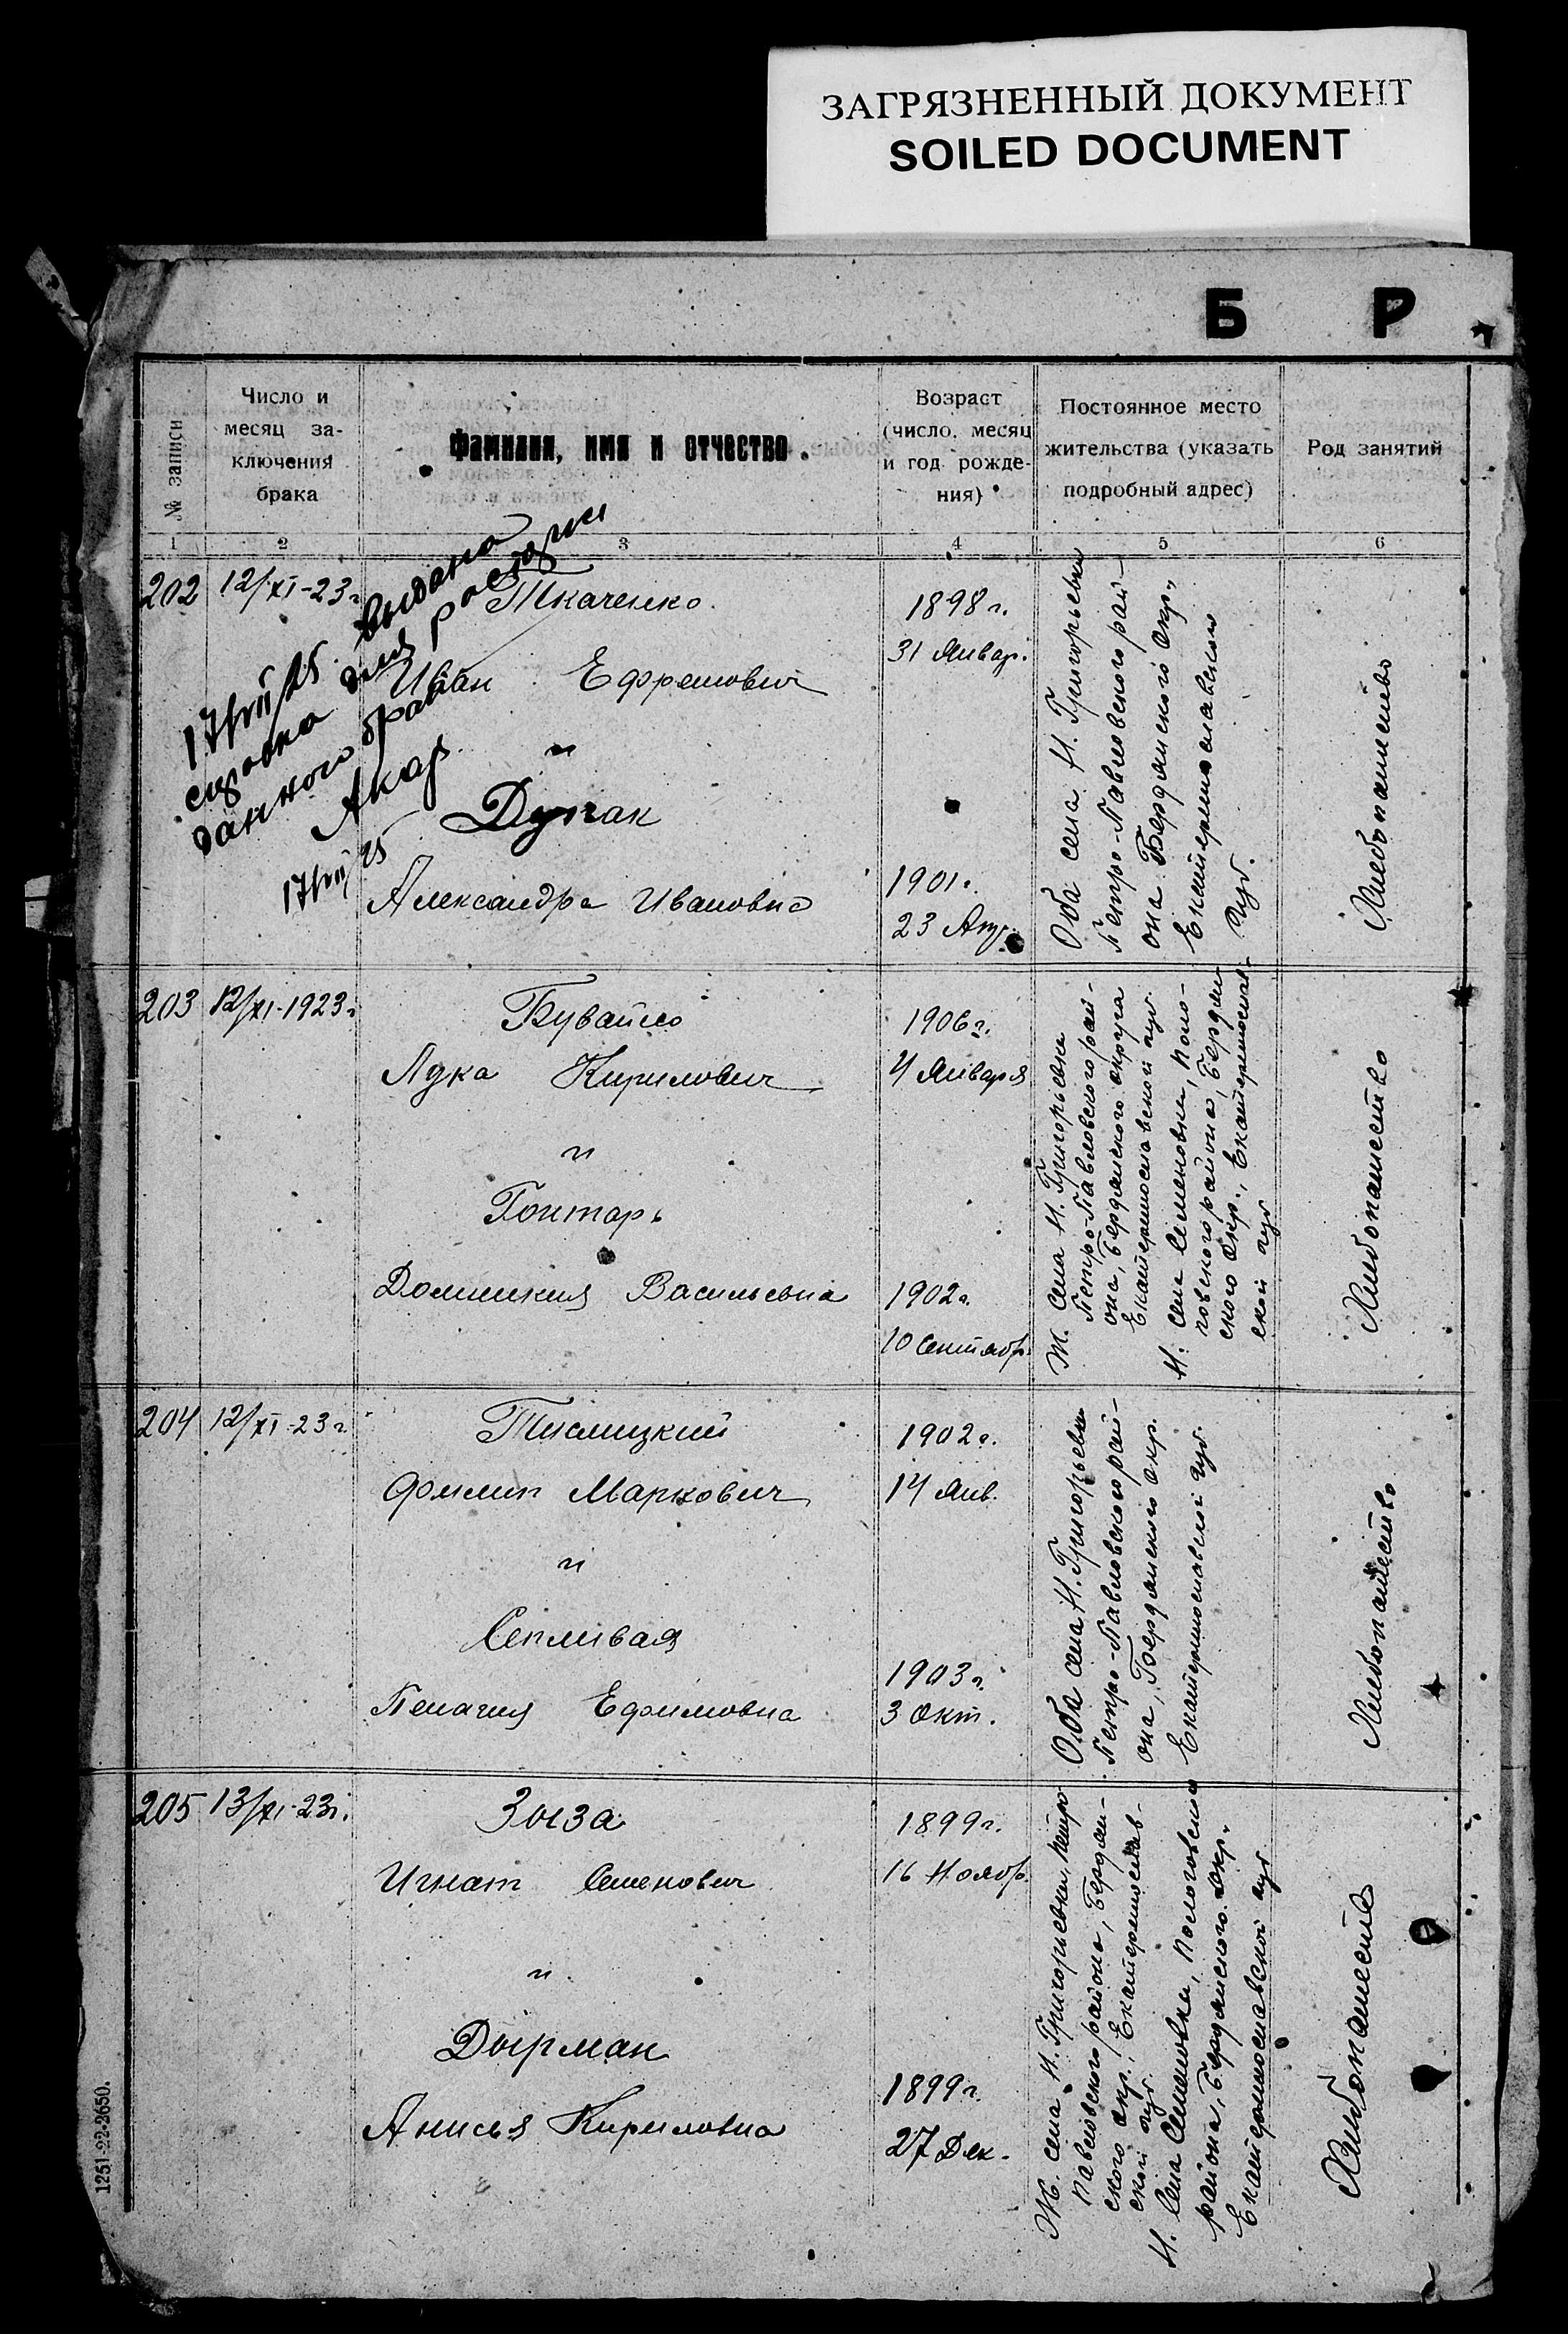 ЗАГРЯЗНЕННЫЙ ДОКУМЕНТ
SOILED DOCUMENT
Б Р
№ записи
Число и
месяц за-
ключения
брака
Фамилия, имя и отчество.
Возраст
(число, месяц
и год рожде-
ния)
Постоянное место
жительства (указать
подробный адрес)
Род занятий
1 2 3 4 5 6
17/VII/25 выдана
справка для расторж
данного брака
17/VII 25
202
12/XI-23г.
Ткаченко
Иван Ефремович
и
Дупак
Александра Ивановна
1898 г.
31 Январ.
1901г.
23 Апр.
Оба села Н. Григорьевки
Петро-Павловского рай-
она Бердянского Окр.,
Екатеринославской
Губ.
Хлебопашество
203
12/XI-1923г
Бувайло
Лука Кирилович
и
Гонтарь
Домникия Васильевна
1906г.
4 Января
1902г.
10 Сентябр.
Ж. села Н. Григорьевки
Петро-Павловского рай-
она, Бердянского округа
Екатеринославской губ.
Н. села Семеновки, Поло-
говского района, Бердян-
ского Окр., Екатеринослав-
ской губ
Хлебопашество
204
12/XI-23г.
Тислицкий
Филип Маркович
и
Сепливая
Пелагия Ефимовна
1902г.
14 Янв.
1903г.
3 Окт.
Оба села Н. Григорьевки
Петро-Павловского рай-
она, Бердянского Окр.
Екатеринославской губ.
Хлебопашество
205
13/XI-23г.
Зыза
Игнат Семенович
и
Дырман
Анисья Кириловна
1899г.
16 Ноябр.
1899г.
27 Дек.
Ж. села Н. Григорьевки, Петро
Павловского района, Бердян-
ского окр., Екатеринослав-
ской губ.
Н. Села Семеновки, Пологовского
района, Бердянского окр.,
Екатеринославской губ
Хлебопашество
1251-22-2650.